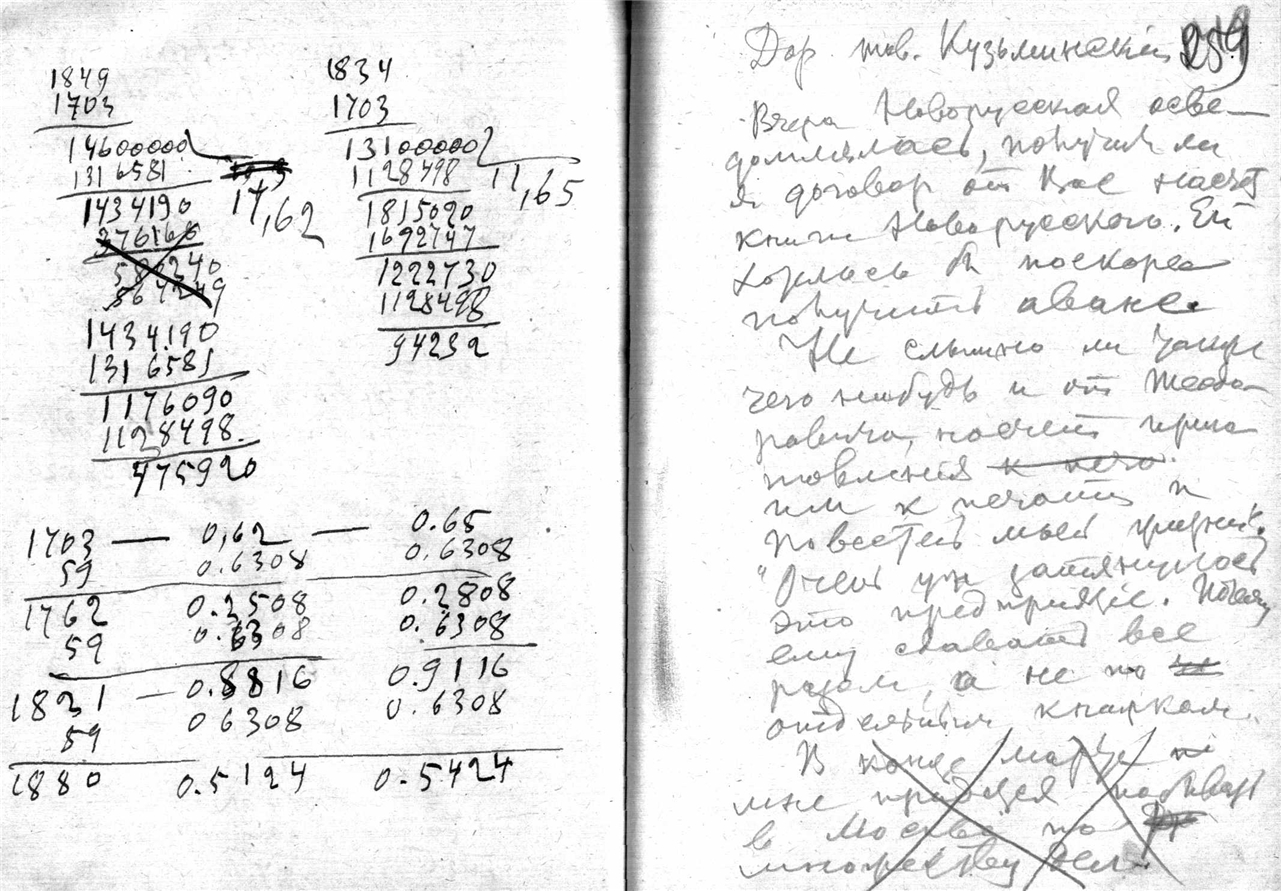 1849
1703
14600000
1316581
14,62
1434190
376166
580240
564249
1434190
1316581
1176090
1128498
475920
1834
1703
13100000
1128498
11,65
1815020
1692747
1222730
1128498
94232
1703 — 0,62 — 0.65
59 0.6308 0.6308
1762 0.2508 0.2808
59 0.6308 0.6308
1821 — 0.8816 0.9116
59 06308 0.6308
1880 0.5124 0.5424
259
Дор. тов. Кузьминский
Вчера Новорусская осве-
домлялась, получил ли
я договор от Вас насчет
книги Новорусского. Ей
хотелось бы поскорее
получить аванс.
Не слышно ли также
чего нибудь и от Теодо
ровича, насчет приго
товления к печа
им к печати и
повестей моей
Очень уж затянулось
это предприятие. Пускай
ему сдавать все
разом, а не по
отдельным книжкам.
В конце марта
мне придется побывать
в Москве по
множеству дел.